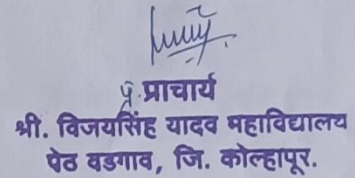 प्र. प्राचार्य
श्री. विजयसिंह यादव महाविद्यालय
पेठ वडगाव, जि. कोल्हापूर.